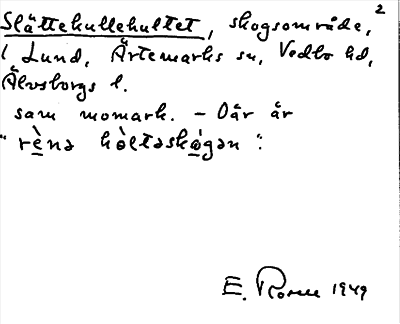 Slättekullehultet, skogsområde, 2
i Lund, Ärtemarks sn, Vedbo hd,
Älvsborgs l.
sam momark. – Där är
"rènə hòltəskógən".
E. Rosell 1949